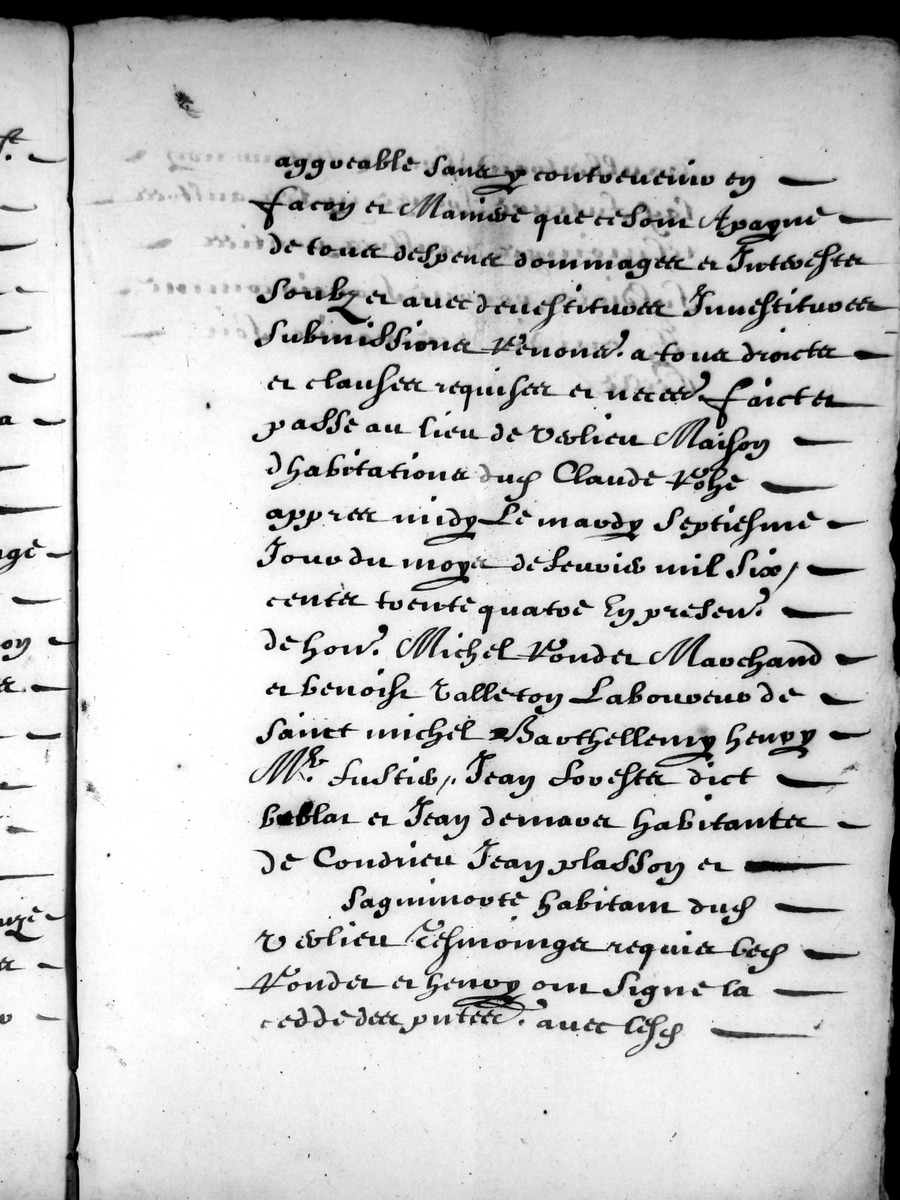 aggreable sans y contrevenir en
facon et Maniere que ce soit A payne
de tous despens dommages et Interestz
soubz et avec devestitures Investitures
submissions Renonc.s a tous droictz
et clauses requises et neces.s faict et
passe au lieu de Verlieu Maison
dhabitations dud Claude Rohe
appres midy Le mardy Septiesme
Jour du moys de febvrier mil six
centz trente quatre En presen.e
de hon. Michel Rondet Marchand
et benoist Valleton Laboureur de
Sainct michel Barthellemy henry
Me. Jean forestz dict
et Jean demares habitantz
de Condrieu Jean plasson et
habitant dud
Verlieu Tesmoings requis lesd
Rondet et henry ont signe la
cedde des pntes. avec lesd